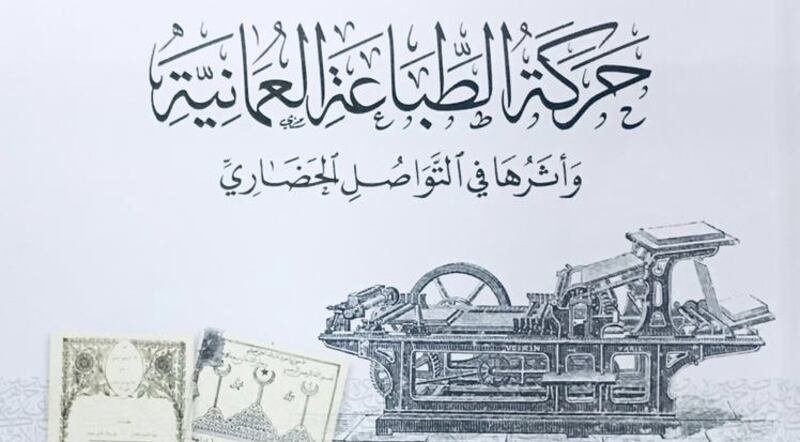 حَرَكَةُ الطِّبَاعَةِ العُمَانِيَّةِ
وَأَثَرُهَا فِي التَّوَاصُلِ الحَضَارِيِّ